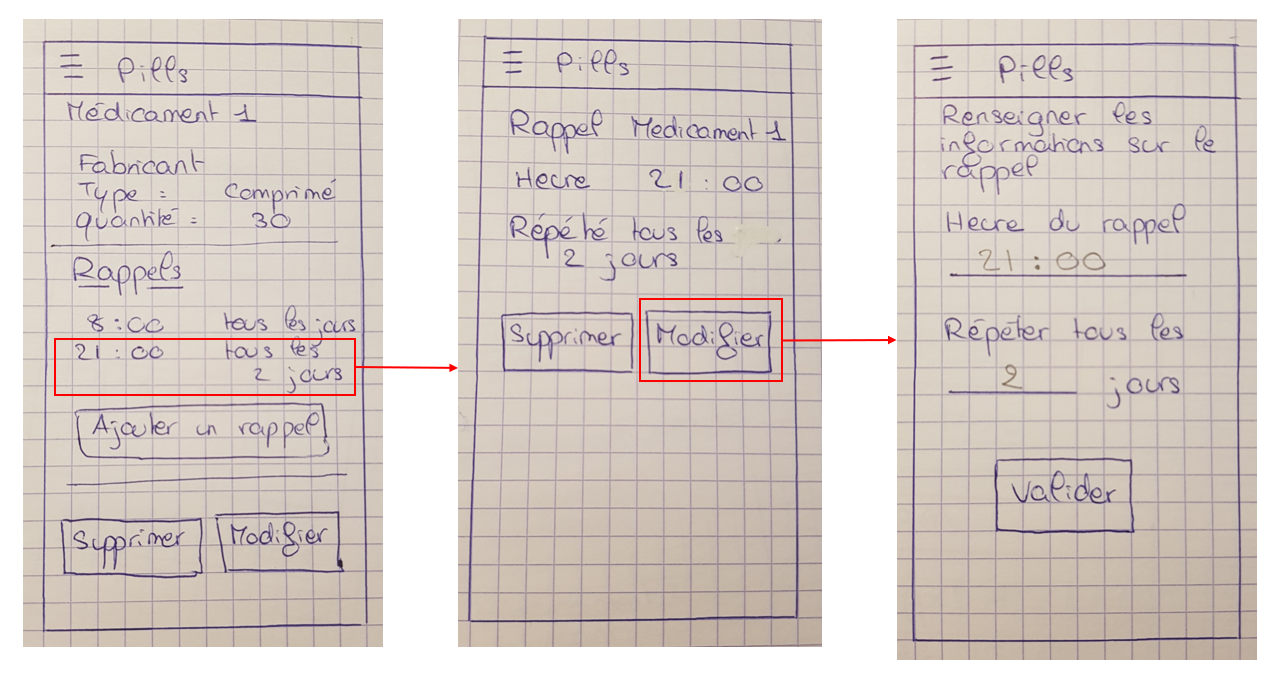 Pills
Médicament 1
Fabricant
Type : Comprimé
quantité : 30
Rappels
8:00 tous les jours
21:00 tous les
2 jours
Ajouter un rappel
Supprimer Modifier
Pills
Rappel Medicament 1
Heure 21:00
Répété tous les
2 jours
Supprimer Modifier
Pills
Renseigner les
informations sur le
rappel
Heure du rappel
21:00
Répéter tous les
2 jours
Valider